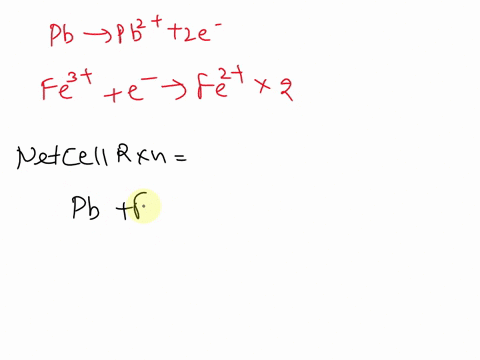 Pb → Pb²⁺ + 2e⁻
Fe³⁺ + e⁻ → Fe²⁺ × 2
Net Cell Rxn =
Pb + F